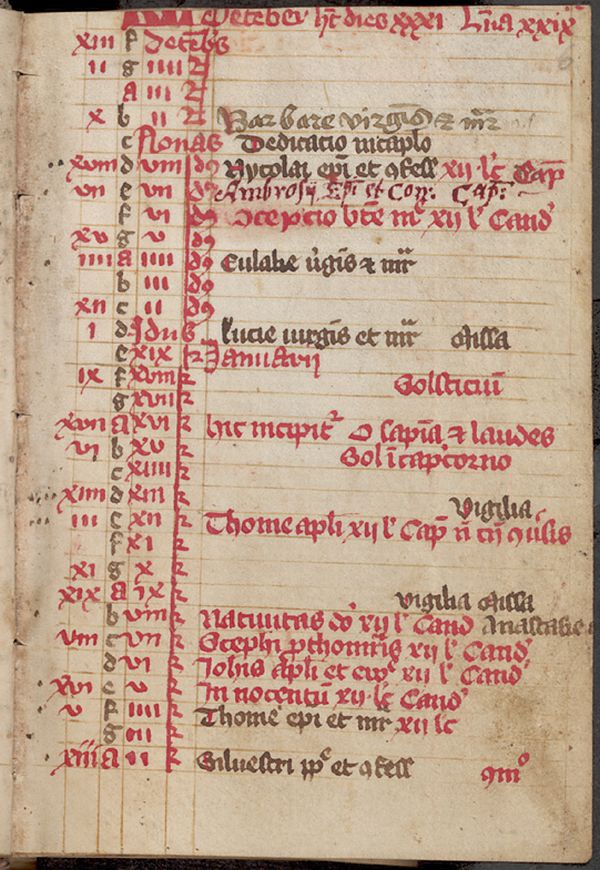 KL Deceber ht dies xxxi Luna xxix
xiii f Decebris
ii g iiii N
A iii N
x b ii N Barbare virginis et mr
c Nonas Dedicatio in caplo
xviii d viii id9 Nycolai epi et 9fess xii lc Cap
vii e vii id9 Ambrosij Epi et Con: Cap:
f vi id9 9cepcio bte me xii lc Cand'
xv g v id9
iiii A iiii id9 Eulalie virginis et mr
b iii id9
xii c ii id9
i d Idus Lucie virginis et mr Missa
e xix kl Januarii
ix f xviii kl Solsticiu
g xvii kl
xvii A xvi kl hic incipitr O sapia et laudes
vi b xv kl Sol i capcorno
c xiiii kl
xiiii d xiii kl Vigilia
iii e xii kl Thome apli xii lc Cap
f xi kl
xi g x kl
xix A ix kl vigilia Missa
b viii kl Natiuitas do' xii lc Cand Anastasie
viii c vii kl Stephi pthomris xii lc Cand'
d vi kl Johis apli et ew xii lc Cand'
xvi e v kl Innocentu xii lc Cand'
v f iiii kl Thome epi et mr xii lc
g iii kl
xiii A ii kl Siluestri pp et 9fess 9mo